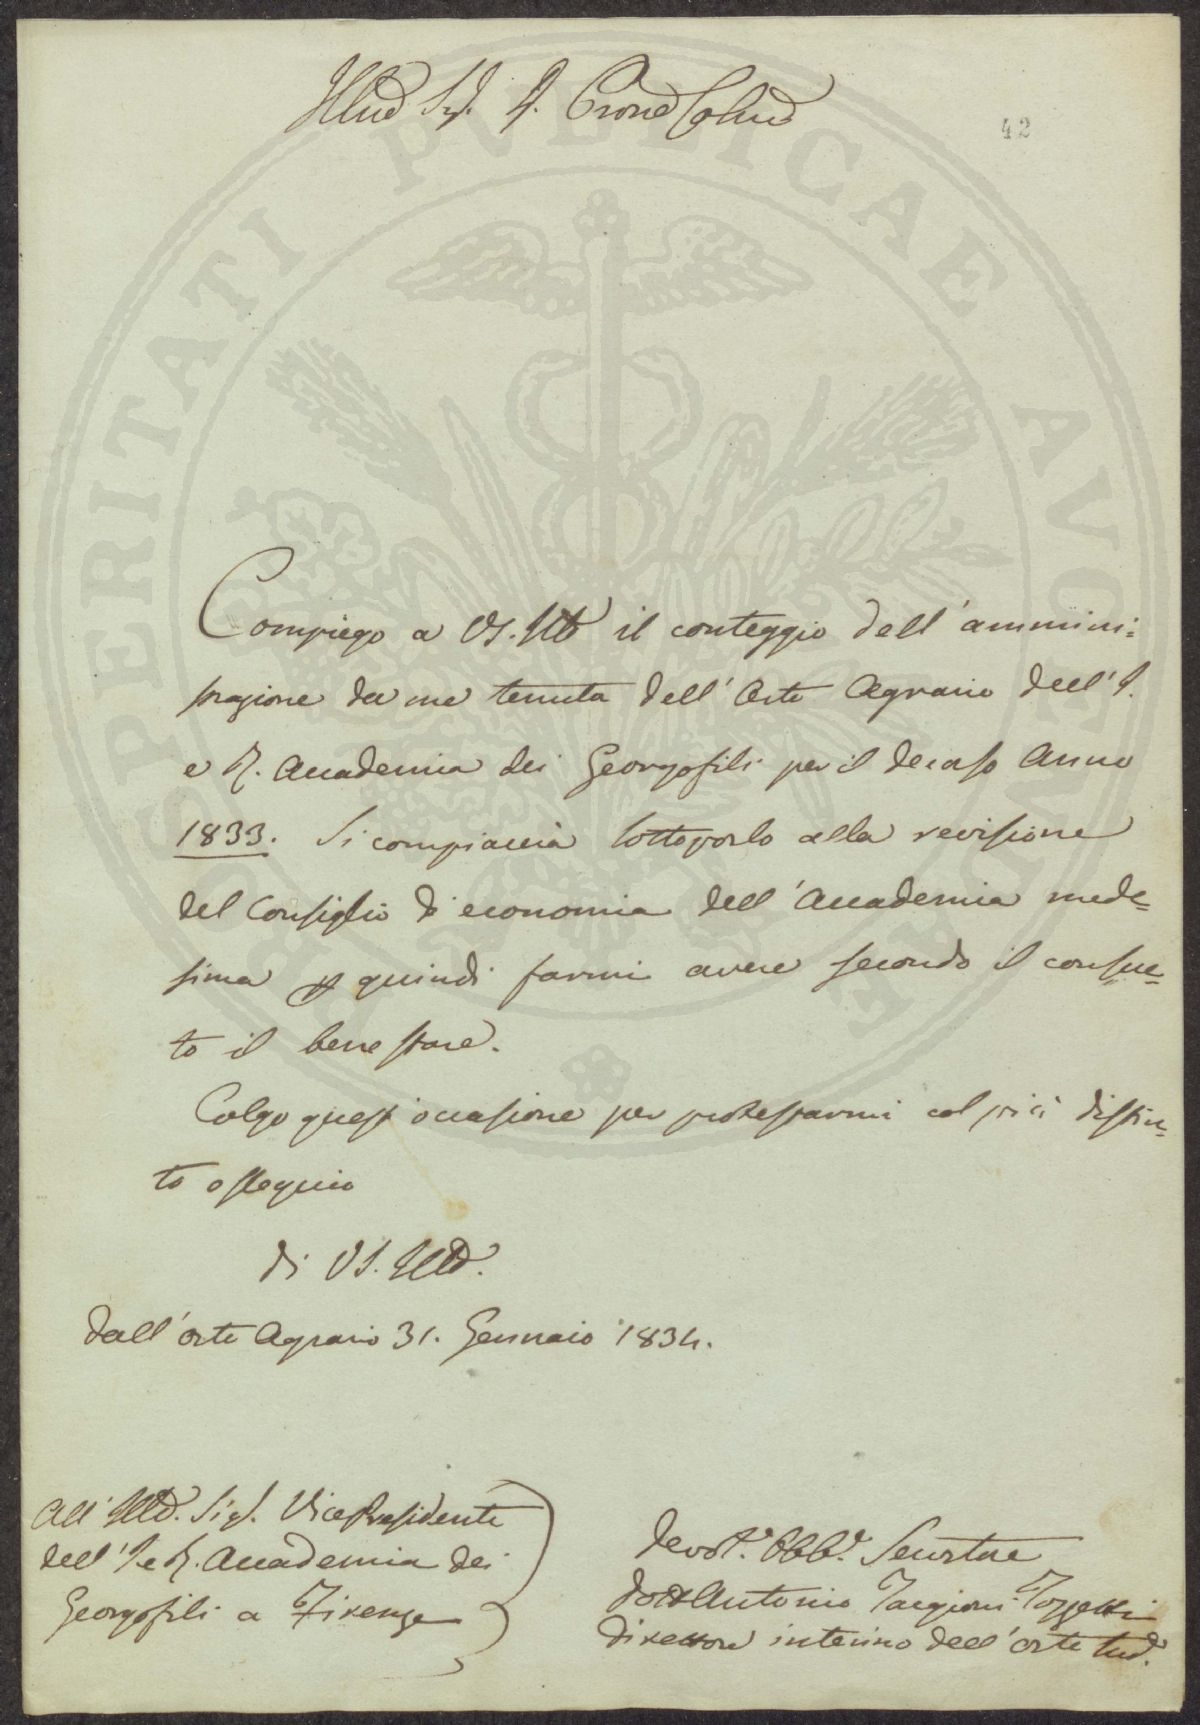 Illmo Sig. P. Prone Colmo
42
Compiego a VS. Illma il conteggio dell'ammini=
strazione da me tenuta dell'Orto Agrario dell'I.
e R. Accademia dei Georgofili per il decorso Anno
1833. Si compiaccia sottoporlo alla revisione
del Consiglio d'economia dell'Accademia mede=
sima e quindi farmi avere secondo il consue=
to il bene stare.
Colgo quest'occasione per protestarmi col più distin=
to ossequio
di VS. Illma.
Dall'orto Agrario 31. Gennaio 1834.
All' Illmo. Sigr. Vice Presidente
dell'I. e R. Accademia dei
Georgofili a Firenze
Devot.o Obb.o Servitore
Dott. Antonio Targioni Tozzetti
Direttore interino dell'orto sud.o
PROSPERITATI PUBLICAE AUGENDAE